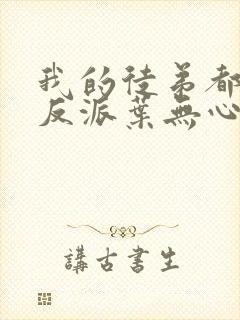 我的徒弟都
反派葉無心
講古書生